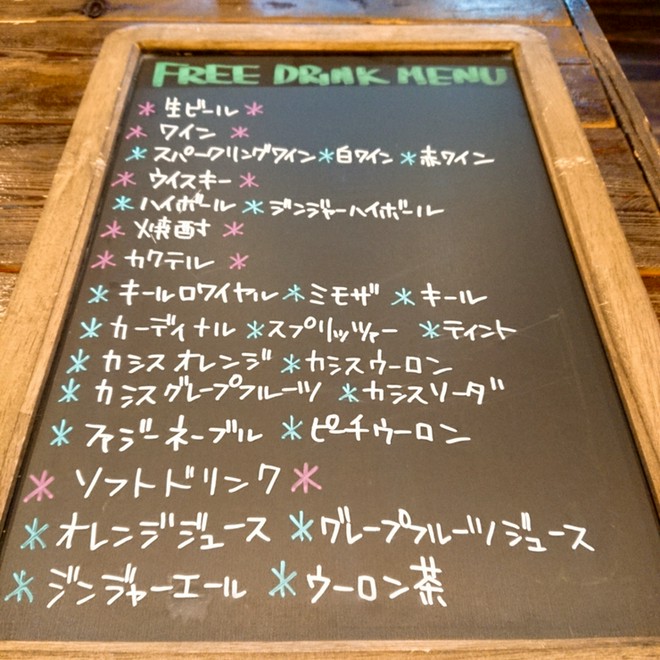 FREE DRINK MENU
* 生ビール *
* ワイン *
* スパークリングワイン * 白ワイン * 赤ワイン
* ウイスキー *
* ハイボール * ジンジャーハイボール
* 焼酎 *
* カクテル *
* キールロワイヤル * ミモザ * キール
* カーディナル * スプリッツァー * ティント
* カシスオレンジ * カシスウーロン
* カシスグレープフルーツ * カシスソーダ
* ファジーネーブル * ピーチウーロン
* ソフトドリンク *
* オレンジジュース * グレープフルーツジュース
* ジンジャーエール * ウーロン茶